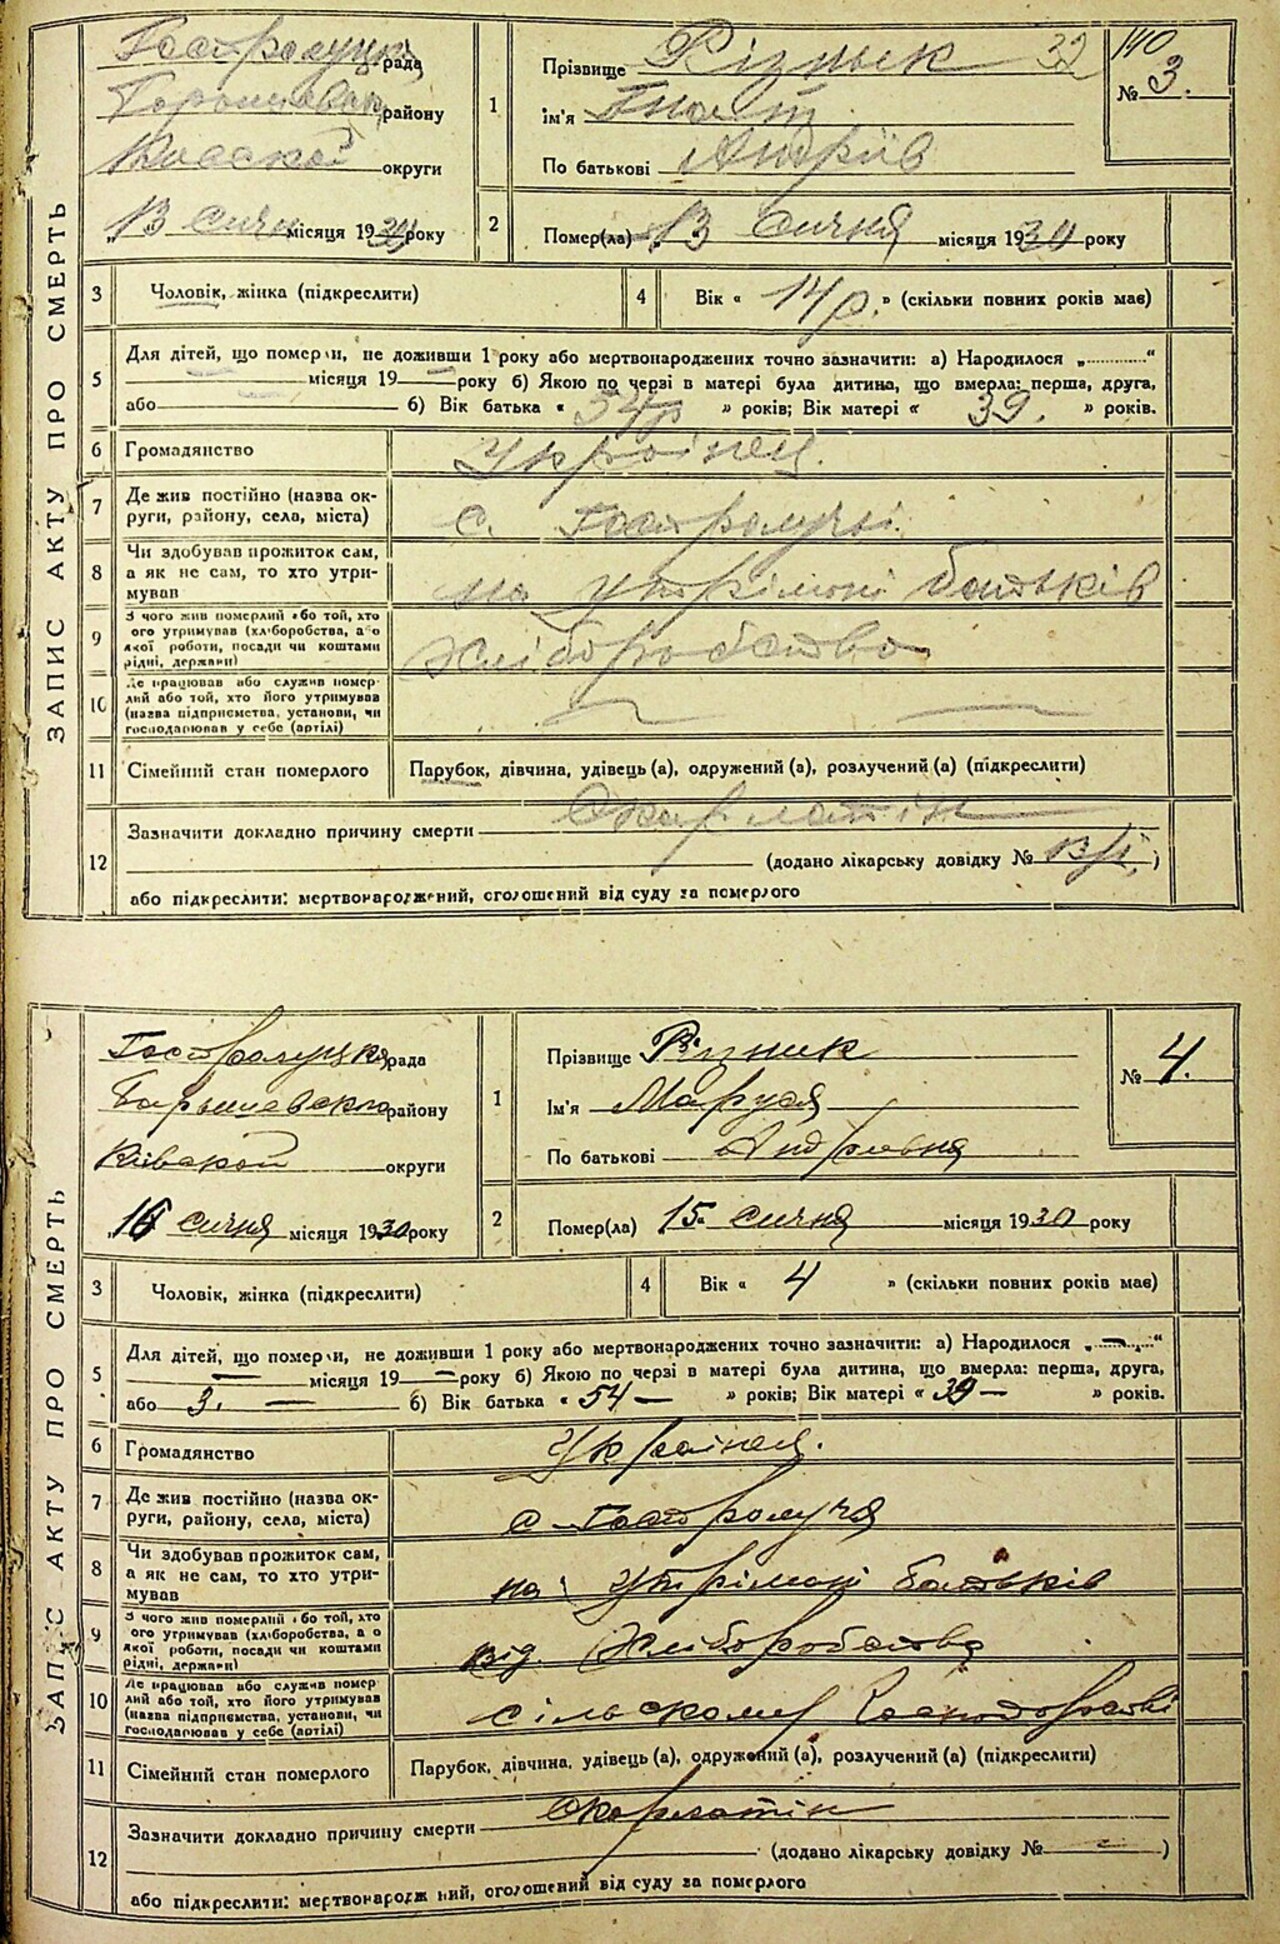 ЗАПИС АКТУ ПРО СМЕРТЬ
Гостролуцка рада
Баришевск району
Киевской округи
„13 сичн місяця 1930 року
1 Прізвище Різнык 32
ім'я Гнат
По батькові Андріїв
140
№ 3.
2 Помер(ла) 13 сичня місяця 1930 року
3 Чоловік, жінка (підкреслити)
4 Вік « 14 р. » (скільки повних років має)
5 Для дітей, що померли, не доживши 1 року або мертвонароджених точно зазначити: а) Народилося „............“
місяця 19— року б) Якою по черзі в матері була дитина, що вмерла: перша, друга,
або б) Вік батька « 54 р » років; Вік матері « 39. » років.
6 Громадянство Украінец.
7 Де жив постійно (назва ок-
руги, району, села, міста) с. Гостролучьі.
8 Чи здобував прожиток сам,
а як не сам, то хто утри-
мував на утрімані батьків
9 З чого жив померлий або той, хто
його утримував (хліборобства, а о
якої роботи, посади чи коштами
рідні, держави) Хліборобство
10 Де працював або служив помер-
лий або той, хто його утримував
(назва підприємства, установи, чи
господарював у себе (артілі) — —
11 Сімейний стан померлого Парубок, дівчина, удівець (а), одружений (а), розлучений (а) (підкреслити)
12 Зазначити докладно причину смерти Скарлатін
(додано лікарську довідку № 13/I)
або підкреслити: мертвонароджений, оголошений від суду за померлого
ЗАПИС АКТУ ПРО СМЕРТЬ
Гостролуцкя рада
Баришевского району
Київской округи
„16 сичня місяця 1930 року
1 Прізвище Різник
Ім'я Маруся
По батькові Андріевня
№ 4.
2 Помер(ла) 15. сичня місяця 1930 року
3 Чоловік, жінка (підкреслити)
4 Вік « 4 » (скільки повних років має)
5 Для дітей, що померли, не доживши 1 року або мертвонароджених точно зазначити: а) Народилося „—“
— місяця 19— року б) Якою по черзі в матері була дитина, що вмерла: перша, друга,
або 3. — б) Вік батька « 54 — » років; Вік матері « 39 — » років.
6 Громадянство Украінец.
7 Де жив постійно (назва ок-
руги, району, села, міста) с Гостролучя
8 Чи здобував прожиток сам,
а як не сам, то хто утри-
мував на утрімані батьків
9 З чого жив померлий або той, хто
його утримував (хліборобства, а о
якої роботи, посади чи коштами
рідні, держави) від. Хліборобства
10 Де працював або служив помер-
лий або той, хто його утримував
(назва підприємства, установи, чи
господарював у себе (артілі) сільскому Господорстві
11 Сімейний стан померлого Парубок, дівчина, удівець (а), одружений (а), розлучений (а) (підкреслити)
12 Зазначити докладно причину смерти Скарлатін
(додано лікарську довідку № —)
або підкреслити: мертвонароджений, оголошений від суду за померлого